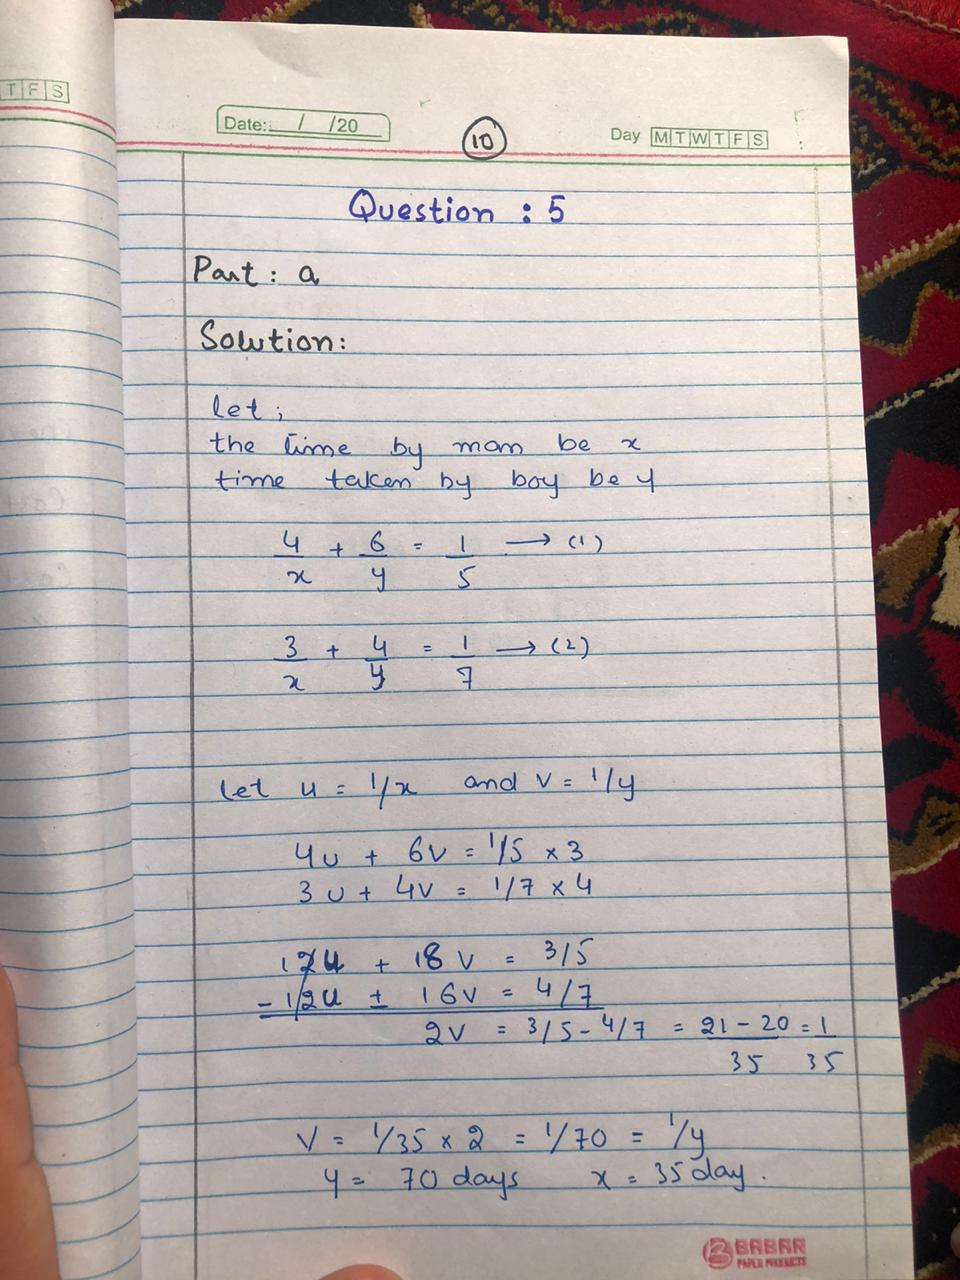 T F S
Date: / /20
10
Day M T W T F S
Question : 5
Part : a
Solution:
let ;
the time by man be x
time taken by boy be y
4/x + 6/y = 1/5 → (1)
3/x + 4/y = 1/7 → (2)
Let u = 1/x and v = 1/y
4u + 6v = 1/5 × 3
3u + 4v = 1/7 × 4
12u + 18v = 3/5
-12u ± 16v = 4/7
2v = 3/5 - 4/7 = 21 - 20/35 = 1/35
V = 1/35 × 2 = 1/70 = 1/y
y = 70 days x = 35 day.
BABAR
PAPER PRODUCTS